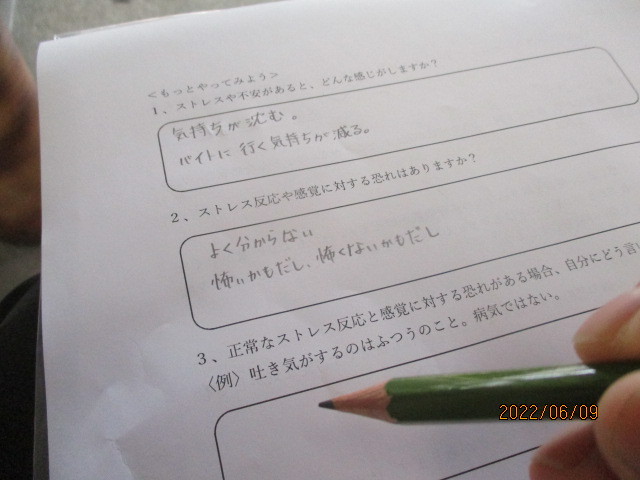 ＜もっとやってみよう＞
1、ストレスや不安があると、どんな感じがしますか？
気持ちが沈む。
バイトに行く気持ちが減る。
2、ストレス反応や感覚に対する恐れはありますか？
よく分からない
怖いかもだし、怖くないかもだし
3、正常なストレス反応と感覚に対する恐れがある場合、自分にどう言
〈例〉吐き気がするのはふつうのこと。病気ではない。
2022/06/09